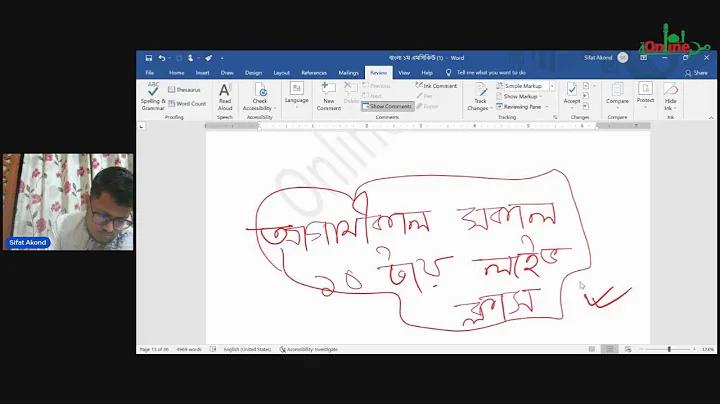 Online
বাংলা ১ম এমসিকিউ (1) - Word
Sifat Akond
File Home Insert Draw Design Layout References Mailings Review View Help Tell me what you want to do
Share
Spelling & Grammar
Thesaurus
Word Count
Proofing
Read Aloud
Speech
Check Accessibility
Accessibility
Language
New Comment
Delete
Previous
Next
Ink Comment
Show Comments
Comments
Track Changes
Simple Markup
Show Markup
Reviewing Pane
Tracking
Accept
Changes
Compare
Compare
Protect
Hide Ink
Ink
Online
আগামীকাল সকাল
১০ টায় লাইভ
ক্লাস
Sifat Akond
Page 13 of 36 4969 words English (United States) Accessibility: Investigate
123%